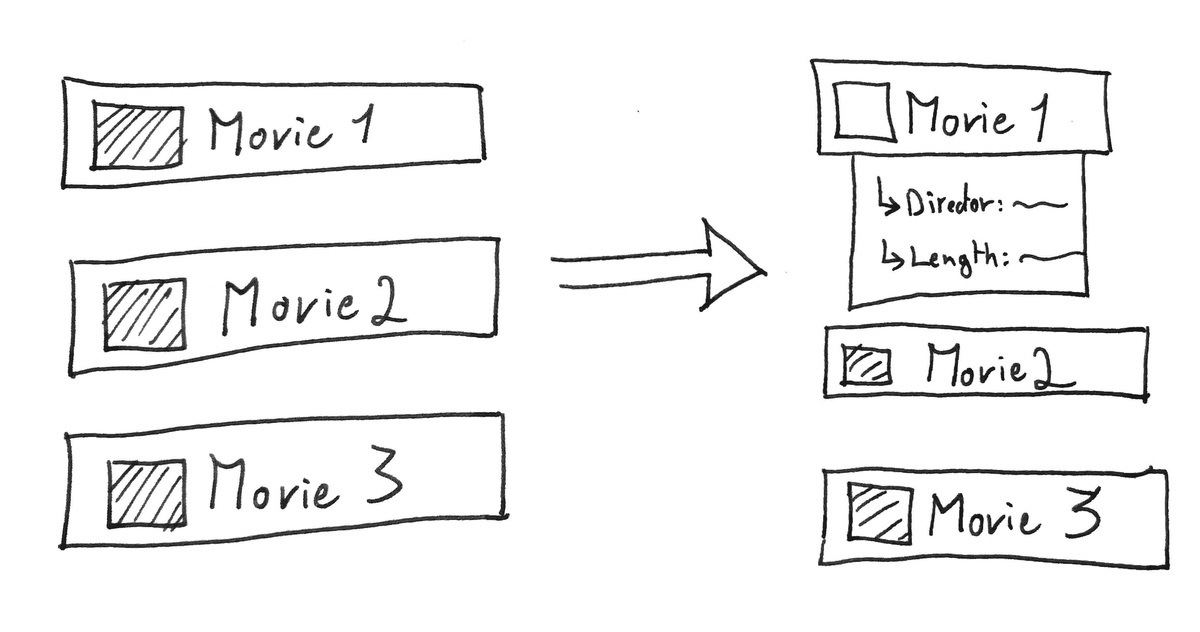 Movie 1
Movie 2
Movie 3
Movie 1
Director:
Length:
Movie 2
Movie 3